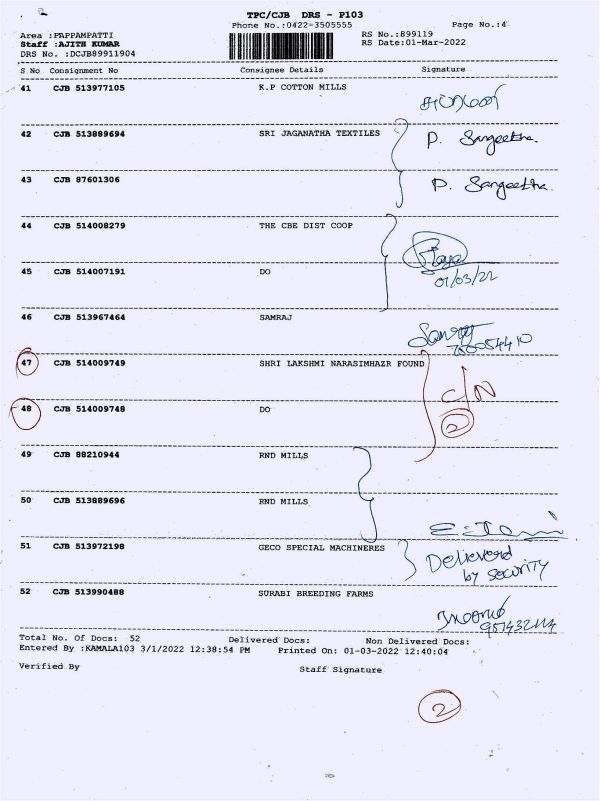 TPC/CJB DRS - P103
Phone No.:0422-3505555 Page No.:4
Area :PAPPAMPATTI RS No.:899119
Staff :AJITH KUMAR RS Date:01-Mar-2022
DRS No. :DCJB89911904
S No Consignment No Consignee Details Signature
41 CJB 513977105 K.P COTTON MILLS
42 CJB 513889694 SRI JAGANATHA TEXTILES P. Sangeetha.
43 CJB 87601306 P. Sangeetha.
44 CJB 514008279 THE CBE DIST COOP
45 CJB 514007191 DO 01/03/22
46 CJB 513967464 SAMRAJ
47 CJB 514009749 SHRI LAKSHMI NARASIMHAZR FOUND C/N
48 CJB 514009748 DO 2
49 CJB 88210944 RND MILLS
50 CJB 513889696 RND MILLS
51 CJB 513972198 GECO SPECIAL MACHINERES Delieverd
by security
52 CJB 513990488 SURABI BREEDING FARMS
Total No. Of Docs: 52 Delivered Docs: Non Delivered Docs:
Entered By :KAMALA103 3/1/2022 12:38:54 PM Printed On: 01-03-2022 12:40:04
Verified By Staff Signature
2